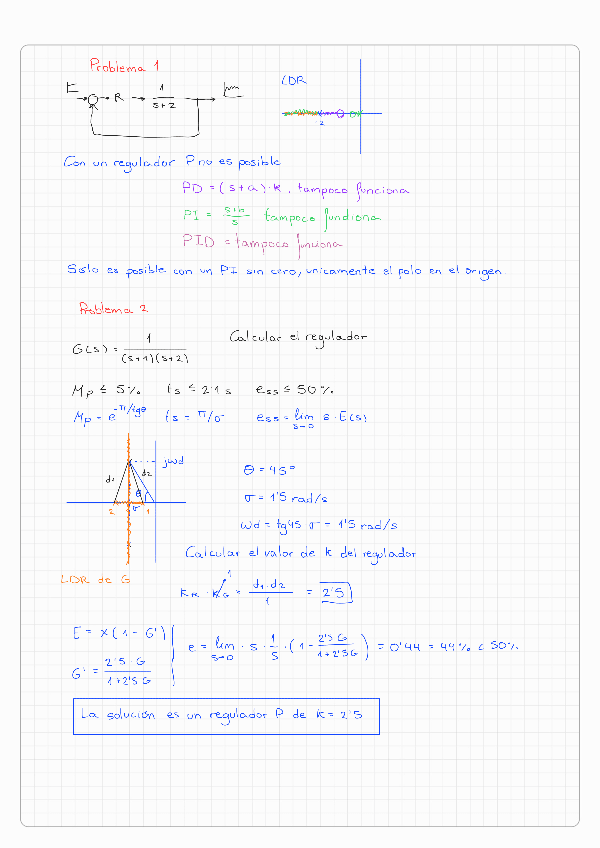 Problema 1
R
1
s+2
LDR
2
Con un regulador P no es posible
PD = (s+a)·K, tampoco funciona
PI = s+b/s tampoco fundiona
PID = tampoco funciona
Sólo es posible con un PI sin cero, unicamente el polo en el origen
Problema 2
G(s) = 1/(s+1)(s+2)
Calcular el regulador
Mp ≤ 5% ts ≤ 2'1 s ess ≤ 50%
Mp = e^-π/tgθ ts = π/σ ess = lim s→0 s·E(s)
jwd
d1 d2
θ
σ
2 1
θ = 45°
σ = 1'5 rad/s
wd = tg45 σ = 1'5 rad/s
Calcular el valor de k del regulador
LDR de G
KR · KG 1 = d1·d2/1 = 2'5
E = X(1 - G')
G' = 2'5 G/1+2'5G
e = lim s→0 · s · 1/s · (1 - 2'5 G/1+2'5G) = 0'44 = 44% < 50%
La solución es un regulador P de K = 2'5